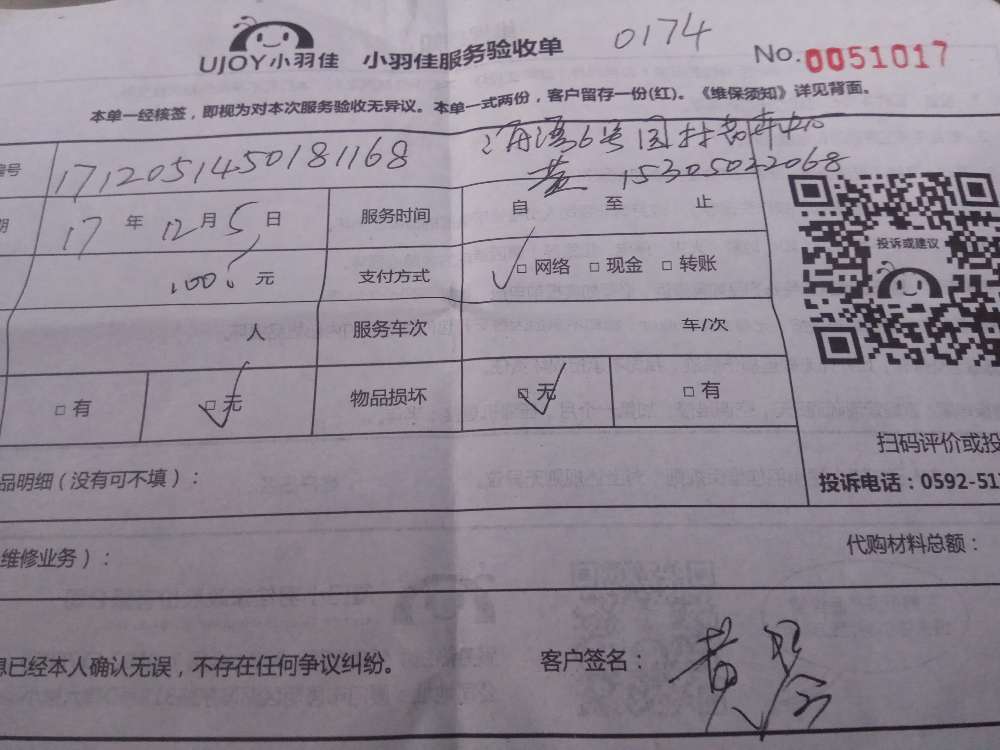 UJOY小羽佳 小羽佳服务验收单 0174 No.0051017
本单一经核签，即视为对本次服务验收无异议。本单一式两份，客户留存一份(红)。《维保须知》详见背面。
编号 1712051450181168 6号
黄 15305022068
期 17 年 12 月 5 日 服务时间 自 至 止
投诉或建议
100. 元 支付方式 □ 网络 □ 现金 □ 转账
人 服务车次 车/次
□ 有 □ 无 物品损坏 □ 无 □ 有
扫码评价或投
品明细（没有可不填）：
投诉电话：0592-511
维修业务）： 代购材料总额：
息已经本人确认无误，不存在任何争议纠纷。 客户签名： 黄